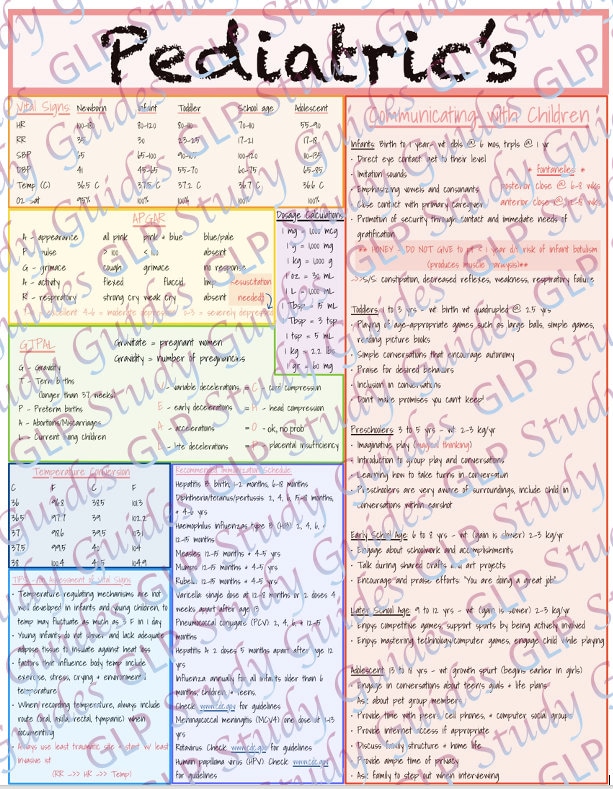 Pediatric's
Vital Signs: Newborn Infant Toddler School age Adolescent
HR 100-180 80-120 80-110 70-110 55-90
RR 35 30 23-25 17-21 17-18
SBP 65 65-100 90-105 100-120 110-135
DBP 41 45-65 55-70 60-75 65-85
Temp (C) 36.5 C 37.5 C 37.2 C 36.7 C 36.6 C
O2 sat 95% 100% 100% 100%
APGAR
A - appearance all pink pink + blue blue/pale
P - pulse > 100 < 100 absent
G - grimace cough grimace no response
A - activity flexed flaccid limp
R - respiratory strong cry weak cry absent
Resuscitation
needed!
excellent 4-6 = moderate depression 0-3 = severely depressed
Dosage Calculations
1 mg = 1,000 mcg
1 g = 1,000 mg
1 kg = 1,000 g
1 oz = 30 mL
1 L = 1,000 mL
1 Tbsp = 15 mL
1 Tbsp = 3 tsp
1 tsp = 5 mL
1 kg = 2.2 lbs
1 gr = 60 mg
GTPAL
Gravidate = pregnant women
Gravidity = number of pregnancies
G - Gravidity
T - Term births
(longer than 37 weeks)
P - Preterm births
A - Abortions/Miscarriages
L - Current living children
V - variable decelerations = C - cord compression
E - early decelerations = H - head compression
A - accelerations = O - ok, no prob
L - late decelerations = P - placental insufficiency
Temperature Conversion
C F C F
36 96.8 38.5 101.3
36.5 97.7 39 102.2
37 98.6 39.5 103.1
37.5 99.5 40 104
38 100.4 40.5 104.9
TIPS: Assessment of Vital Signs
- Temperature regulating mechanisms are not
well developed in infants and young children, so
temp may fluctuate as much as 3 F in 1 day
- Young infants do not shiver and lack adequate
adipose tissue to insulate against heat loss
- factors that influence body temp include
exercise, stress, crying + environment
temperature
- When recording temperature, always include
route (oral, axilla, rectal, tympanic) when
documenting
- Always use least traumatic site + start w/ least
invasive 1st
(RR ->> HR ->> Temp)
Recommended Immunization Schedule:
Hepatitis B: birth, 1-2 months, 6-18 months
Diphtheria/tetanus/pertussis: 2, 4, 6, 15-18 months,
+ 4-6 yrs
Haemophilus influenzae type B (HIB): 2, 4, 6, +
12-15 months
Measles: 12-15 months + 4-5 yrs
Mumps: 12-15 months + 4-5 yrs
Rubella: 12-15 months + 4-5 yrs
Varicella: single dose at 12-18 months or 2 doses 4
weeks apart after age 13
Pneumococcal conjugate (PCV): 2, 4, 6, + 12-15
months
Hepatitis A: 2 doses, 6 months apart after age 12
yrs
Influenza: annually for all infants older than 6
months, children + teens.
Check www.cdc.gov for guidelines
Meningococcal meningitis (MCV4): one dose at 11-13
yrs
Rotavirus: Check www.cdc.gov for guidelines
Human papilloma virus (HPV): Check www.cdc.gov
for guidelines
Communicating with Children
Infants: Birth to 1 year - wt dbls @ 6 mos, trpls @ 1 yr
- Direct eye contact, get to their level
- Imitation sounds
- Emphasizing vowels and consonants
- Close contact with primary caregiver
- Promotion of security through contact and immediate needs of
gratification
* fontanelles *
posterior close @ 6-8 wks
anterior close @ 12-18 wks
** HONEY - DO NOT GIVE to pt < 1 year d/t risk of infant botulism
(produces muscle paralysis)**
->> S/S: constipation, decreased reflexes, weakness, respiratory failure
Toddlers: 1 to 3 yrs - wt birth wt quadrupled @ 2.5 yrs
- Playing of age-appropriate games such as large balls, simple games,
reading picture books
- Simple conversations that encourage autonomy
- Praise for desired behaviors
- Inclusion in conversations
- Don't make promises you can't keep!
Preschoolers: 3 to 5 yrs - wt 2-3 kg/yr
- Imaginative play (magical thinking)
- Introduction to group play and conversations
- Learning how to take turns in conversation
- Preschoolers are very aware of surroundings, include child in
conversations within earshot
Early School Age: 6 to 8 yrs - wt (gain is slower) 2-3 kg/yr
- Engage about schoolwork and accomplishments
- Talk during shared crafts and art projects
- Encourage and praise efforts "You are doing a great job!"
Later School Age: 9 to 12 yrs - wt (gain is slower) 2-3 kg/yr
- Enjoys competitive games, support sports by being actively involved
- Enjoys mastering technology/computer games, engage child while playing
Adolescent: 13 to 18 yrs - wt growth spurt (begins earlier in girls)
- Engage in conversations about teen's goals + life plans
- Ask about pet group members
- Provide time with peers, cell phones, + computer social group
- Provide internet access if appropriate
- Discuss family structure + home life
- Provide ample time of privacy
- Ask family to step out when interviewing
GLP Study Guides